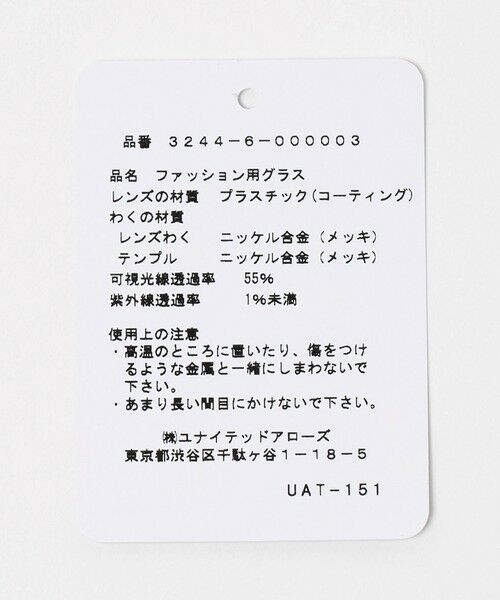 品番 3244-6-000003
品名 ファッション用グラス
レンズの材質 プラスチック(コーティング)
わくの材質
レンズわく ニッケル合金(メッキ)
テンプル ニッケル合金(メッキ)
可視光線透過率 55%
紫外線透過率 1%未満
使用上の注意
・高温のところに置いたり、傷をつけ
るような金属と一緒にしまわないで
下さい。
・あまり長い間目にかけないで下さい。
㈱ユナイテッドアローズ
東京都渋谷区千駄ヶ谷1-18-5
UAT-151